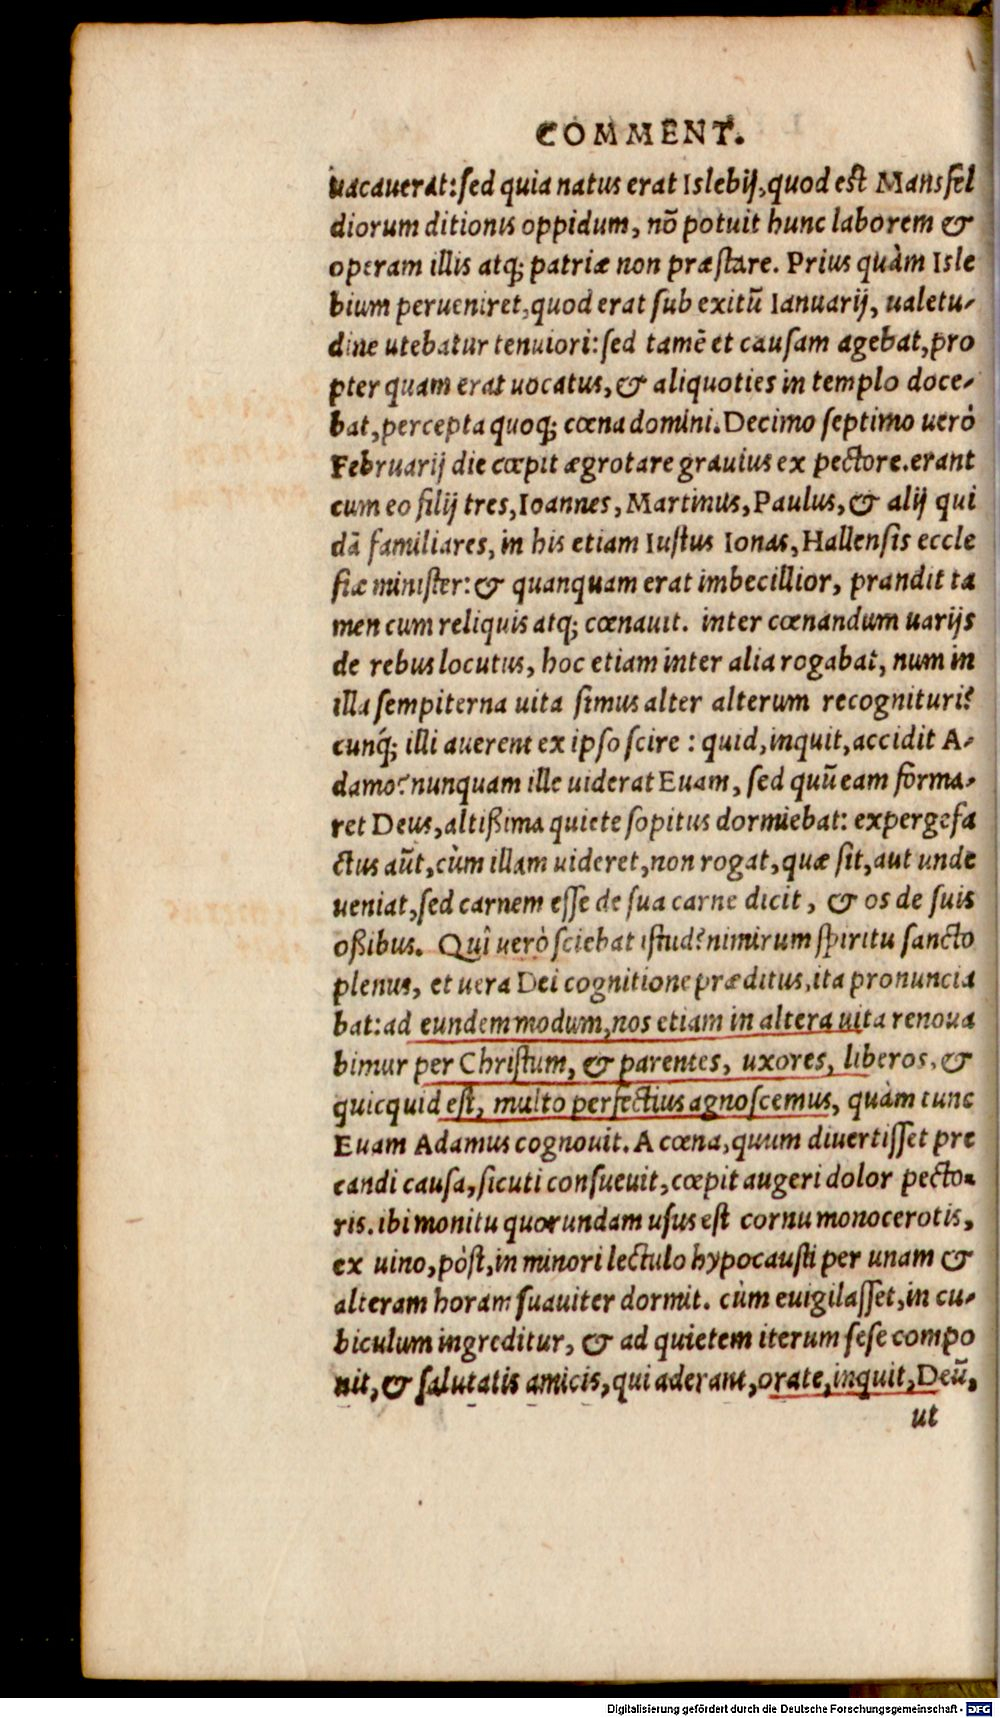 COMMENT.
uacauerat: sed quia natus erat Islebij, quod est Mansfel
diorum ditionis oppidum, nõ potuit hunc laborem &
operam illis atq; patriæ non præstare. Prius quàm Isle
bium perueniret, quod erat sub exitũ Ianuarij, ualetu-
dine utebatur tenuiori: sed tamẽ et causam agebat, pro
pter quam erat uocatus, & aliquoties in templo doce-
bat, percepta quoq; cœna domini. Decimo septimo uerò
Februarij die cœpit ægrotare grauius ex pectore. erant
cum eo filij tres, Ioannes, Martinus, Paulus, & alij qui
dã familiares, in his etiam Iustus Ionas, Hallensis eccle
siæ minister: & quanquam erat imbecillior, prandit ta
men cum reliquis atq; cœnauit. inter cœnandum uarijs
de rebus locutus, hoc etiam inter alia rogabat, num in
illa sempiterna uita simus alter alterum recognituri?
cunq́; illi auerent ex ipso scire: quid, inquit, accidit A-
damo? nunquam ille uiderat Euam, sed quũ eam forma-
ret Deus, altißima quiete sopitus dormiebat: expergefa
ctus aũt, cùm illam uideret, non rogat, quæ sit, aut unde
ueniat, sed carnem esse de sua carne dicit, & os de suis
oßibus. Quî uerò sciebat istud? nimirum spiritu sancto
plenus, et uera Dei cognitione præditus, ita pronuncia
bat: ad eundem modum, nos etiam in altera uita renoua
bimur per Christum, & parentes, uxores, liberos, &
quicquid est, multo perfectius agnoscemus, quàm tunc
Euam Adamus cognouit. A cœna, quum diuertisset pre
candi causa, sicuti consueuit, cœpit augeri dolor pecto-
ris. ibi monitu quorundam usus est cornu monocerotis,
ex uino, pòst, in minori lectulo hypocausti per unam &
alteram horam suauiter dormit. cùm euigilasset, in cu-
biculum ingreditur, & ad quietem iterum sese compo
nit, & salutatis amicis, qui aderant, orate, inquit, Deũ,
ut
Digitalisierung gefördert durch die Deutsche Forschungsgemeinschaft - DFG